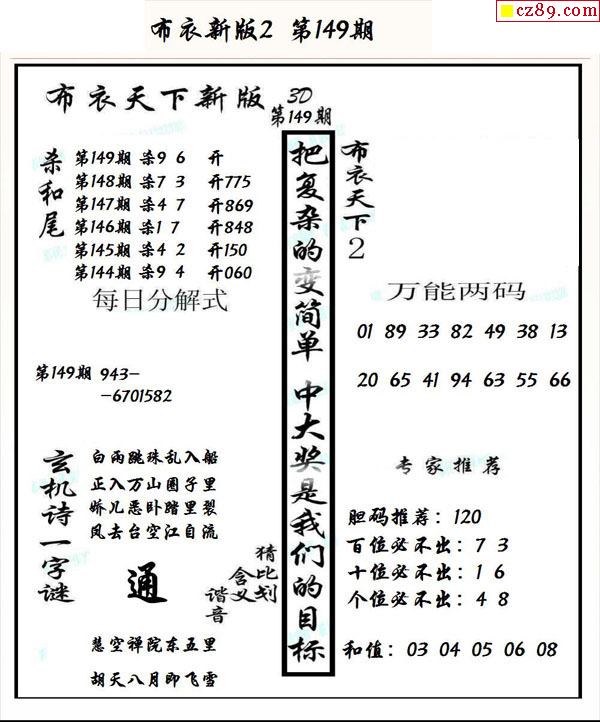 cz89.com
布衣新版2 第149期
布衣天下新版 3D
第149期
杀和尾
第149期 杀9 6 开
第148期 杀7 3 开775
第147期 杀4 7 开869
第146期 杀1 7 开848
第145期 杀4 2 开150
第144期 杀9 4 开060
每日分解式
第149期 943-
-6701582
玄机诗一字谜
白雨跳珠乱入船
正入万山圈子里
娇儿恶卧踏里裂
凤去台空江自流
通
猜比划
含义
谐音
慧空禅院东五里
胡天八月即飞雪
把复杂的变简单 中大奖是我们的目标
布衣天下2
万能两码
01 89 33 82 49 38 13
20 65 41 94 63 55 66
专家推荐
胆码推荐：120
百位必不出：7 3
十位必不出：1 6
个位必不出：4 8
和值：03 04 05 06 08